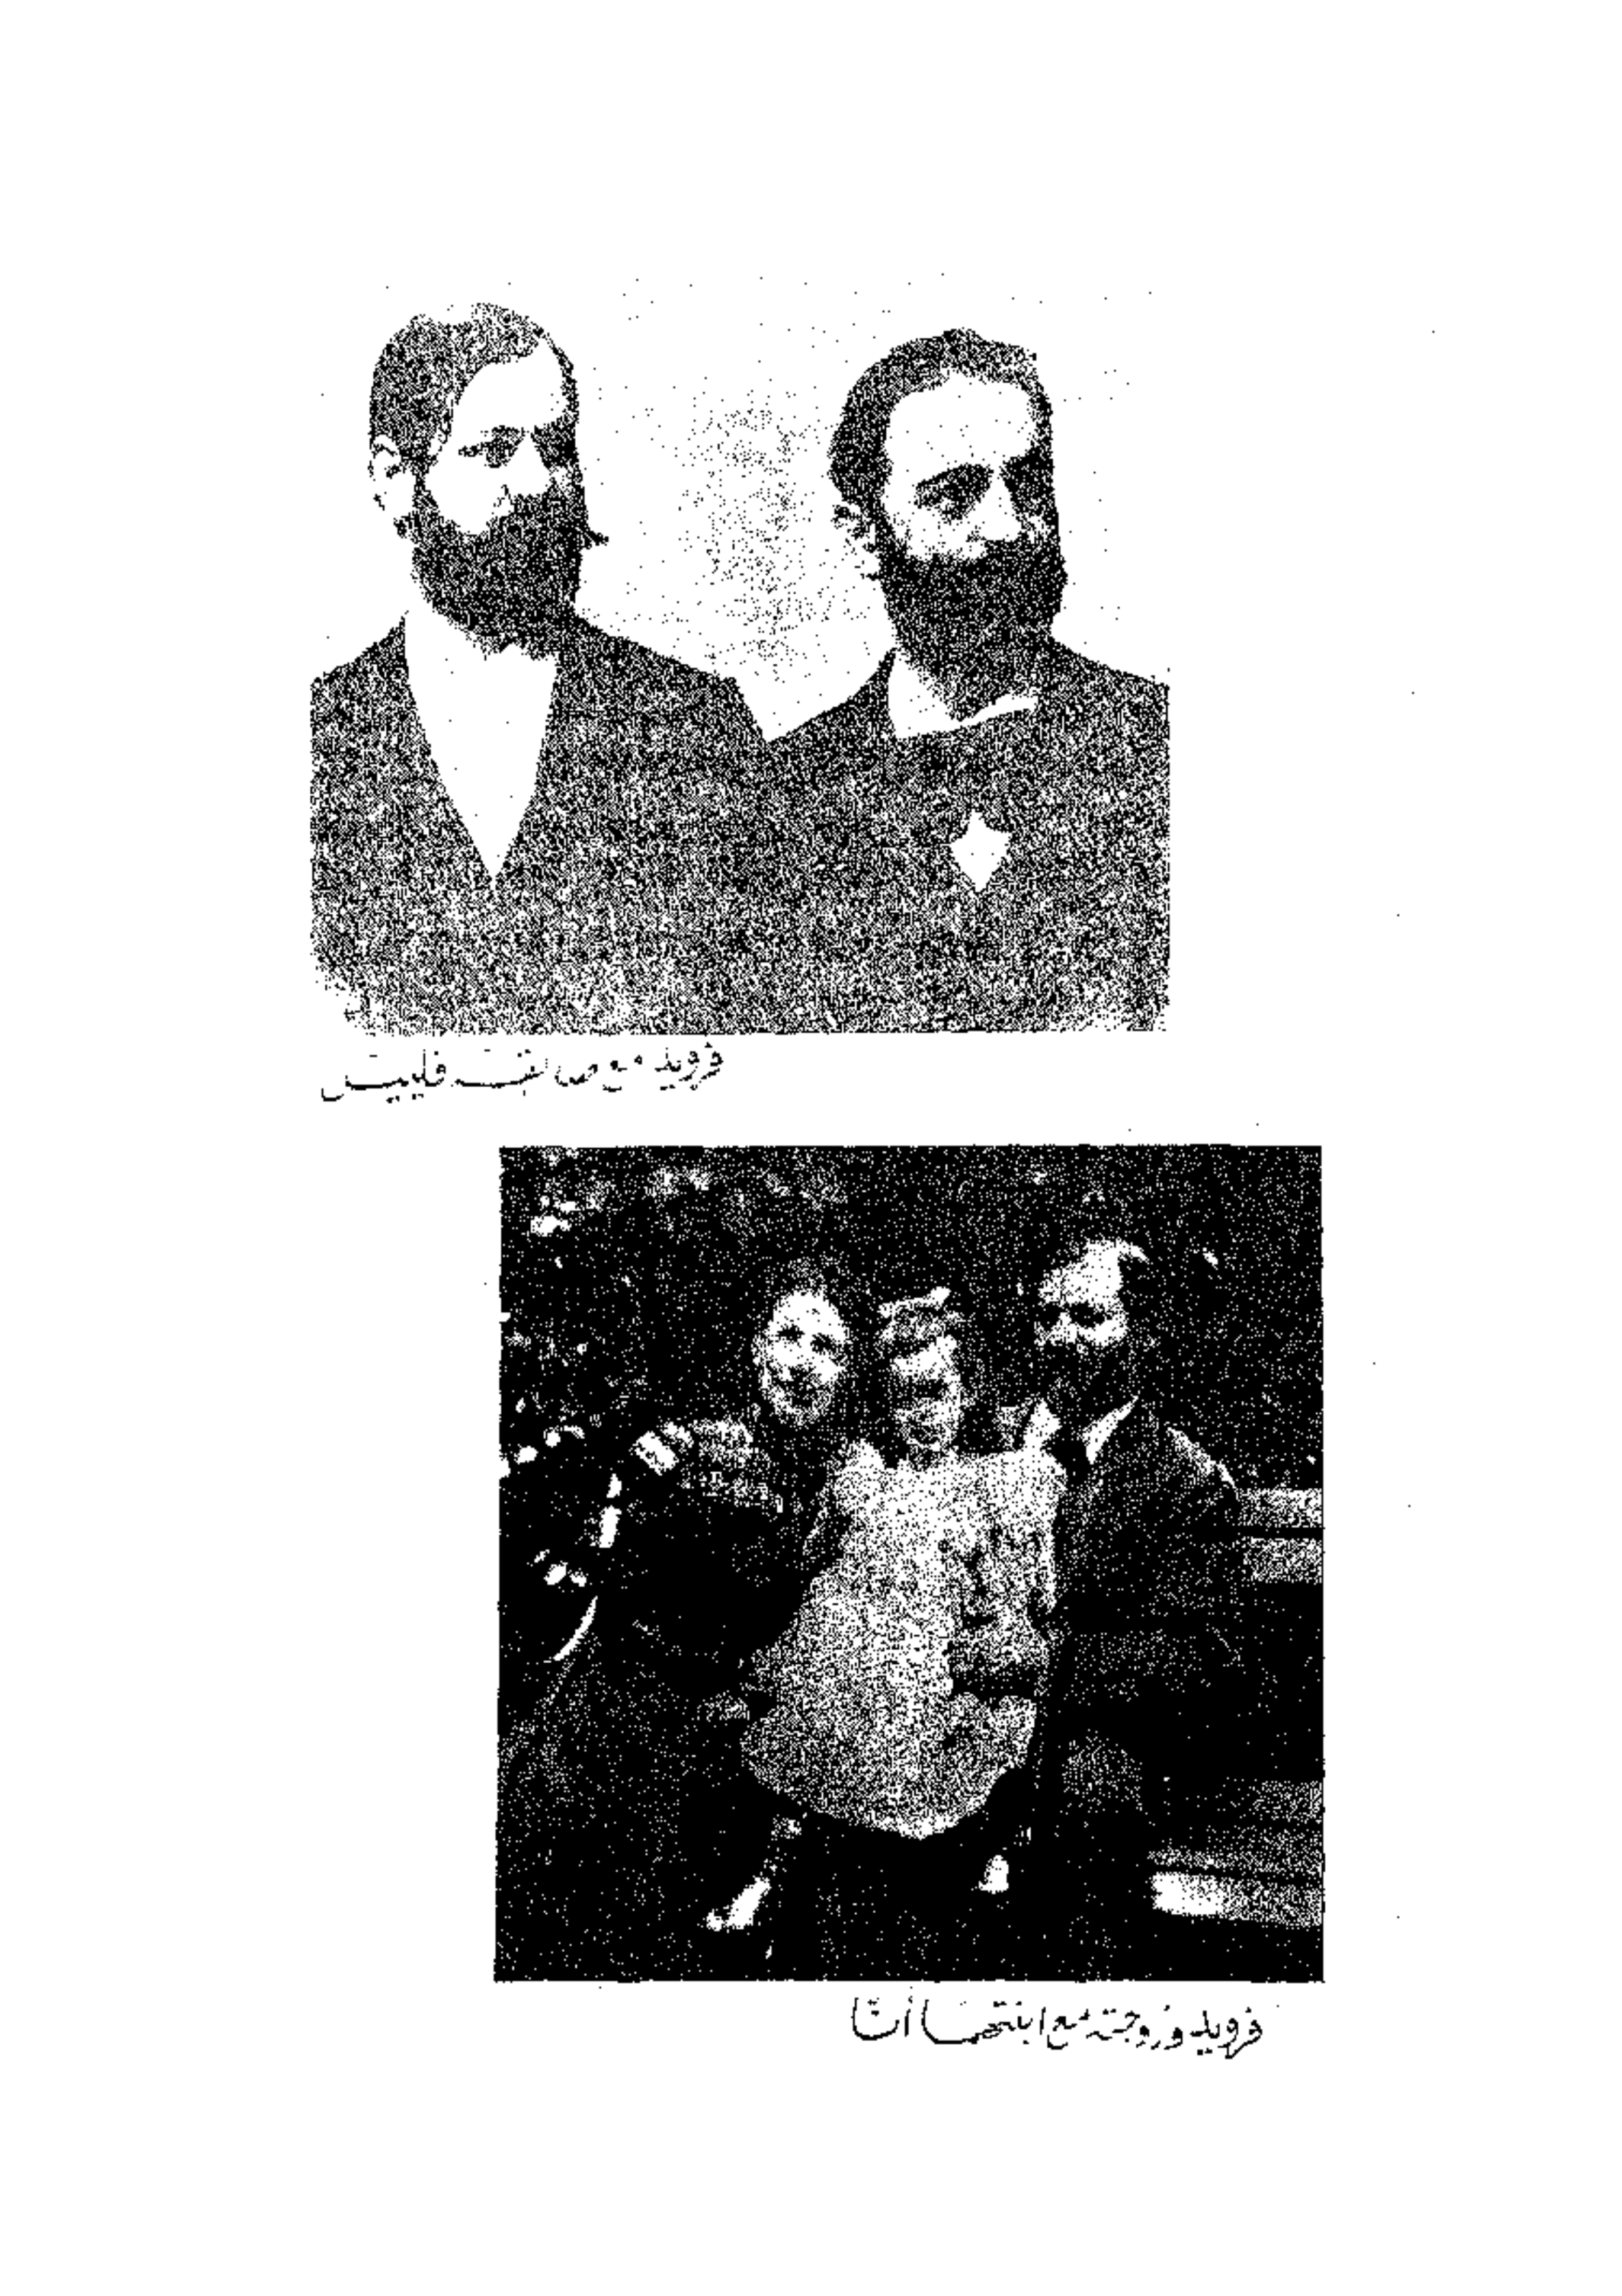 فرويد مع فلييس
فرويد وزوجته مع ابنتهما أنّا